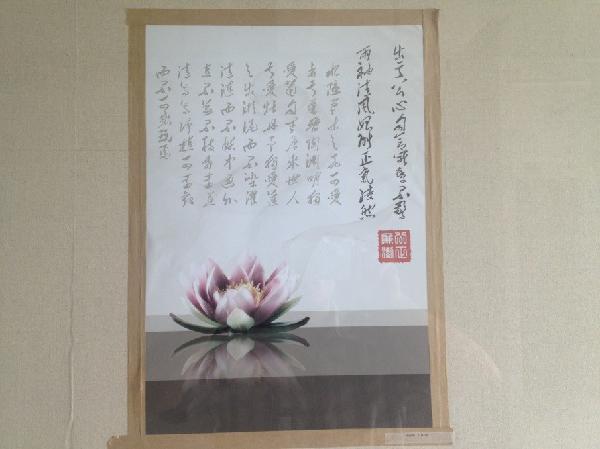 出于公心
两袖清风 正气浩然
水陆草木之花可爱
者甚蕃晋陶渊明独
爱菊自李唐来世人
甚爱牡丹予独爱莲
之出淤泥而不染濯
清涟而不妖中通外
直不蔓不枝香远益
清亭亭净植可远观
而不可亵玩焉